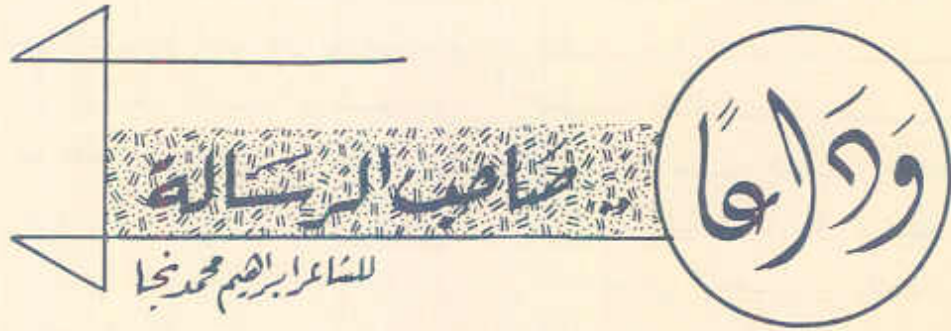 وَدَاعًا
.. صَاحِبَ الرسَالة
للشاعر ابراهيم محمد نجا